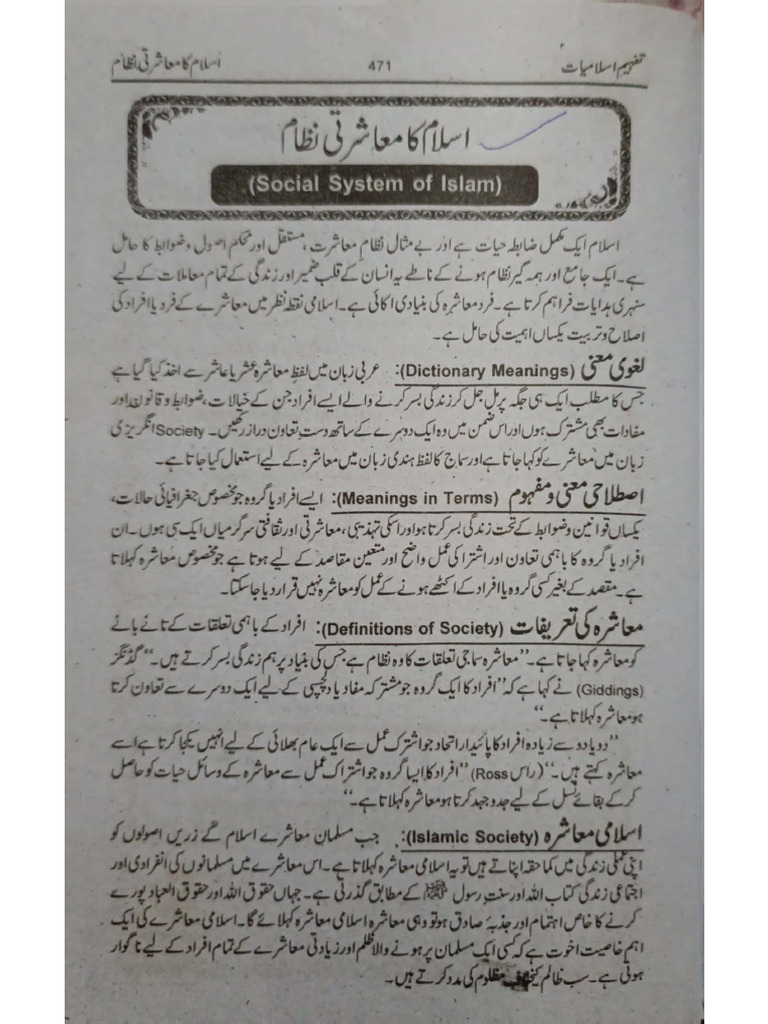 تفہیم اسلامیات 471 اسلام کا معاشرتی نظام
اسلام کا معاشرتی نظام
(Social System of Islam)
اسلام ایک مکمل ضابطہ حیات ہے اور بے مثال نظام معاشرت، مستقل اور محکم اصول وضوابط کا حامل
ہے۔ ایک جامع اور ہمہ گیر نظام ہونے کے ناطے یہ انسان کے قلب ضمیر اور زندگی کے تمام معاملات کے لیے
سنہری ہدایات فراہم کرتا ہے۔ فرد معاشرہ کی بنیادی اکائی ہے۔ اسلامی نقطہ نظر میں معاشرے کے فرد یا افراد کی
اصلاح و تربیت یکساں اہمیت کی حامل ہے۔
لغوی معنی (Dictionary Meanings): عربی زبان میں لفظ معاشرہ عشر یا عاشر سے اخذ کیا گیا ہے
جس کا مطلب ایک ہی جگہ پر مل جل کر زندگی بسر کرنے والے ایسے افراد جن کے خیالات، ضوابط و قانون اور
مفادات بھی مشترک ہوں اور اس ضمن میں وہ ایک دوسرے کے ساتھ دست تعاون دراز رکھیں۔ Society انگریزی
زبان میں معاشرے کو کہا جاتا ہے اور سماج کا لفظ ہندی زبان میں معاشرہ کے لیے استعمال کیا جاتا ہے۔
اصطلاحی معنی و مفہوم (Meanings in Terms): ایسے افراد یا گروہ جو مخصوص جغرافیائی حالات،
یکساں قوانین وضوابط کے تحت زندگی بسر کرتا ہو اور اسکی تہذیبی، معاشرتی اور ثقافتی سرگرمیاں ایک سی ہوں۔ ان
افراد یا گروہ کا باہمی تعاون اور اشتراکی عمل واضح اور متعین مقاصد کے لیے ہوتا ہے جو مخصوص معاشرہ کہلاتا
ہے۔ مقصد کے بغیر کسی گروہ یا افراد کے اکٹھے ہونے کے عمل کو معاشرہ نہیں قرار دیا جاسکتا۔
معاشرہ کی تعریفات (Definitions of Society): افراد کے باہمی تعلقات کے تانے بانے
کو معاشرہ کہا جاتا ہے۔ ”معاشرہ سماجی تعلقات کا وہ نظام ہے جس کی بنیاد پر ہم زندگی بسر کرتے ہیں۔“ گڈنگز
(Giddings) نے کہا ہے کہ ”افراد کا ایک گروہ جو مشترکہ مفاد یا دلچسپی کے لیے ایک دوسرے سے تعاون کرتا
ہو معاشرہ کہلاتا ہے۔“
”دو یا دو سے زیادہ افراد کا پائیدار اتحاد جو اشترک عمل سے ایک عام بھلائی کے لیے انہیں یکجا کرتا ہے اسے
معاشرہ کہتے ہیں۔“ (راس Ross) ”افراد کا ایسا گروہ جو اشتراک عمل سے معاشرہ کے وسائل حیات کو حاصل
کر کے بقائے نسل کے لیے جدوجہد کرتا ہو معاشرہ کہلاتا ہے۔“
اسلامی معاشرہ (Islamic Society): جب مسلمان معاشرے اسلام کے زریں اصولوں کو
اپنی عملی زندگی میں کما حقہ اپناتے ہیں تو یہ اسلامی معاشرہ کہلاتا ہے۔ اس معاشرے میں مسلمانوں کی انفرادی اور
اجتماعی زندگی کتاب اللہ اور سنت رسول ﷺ کے مطابق گذرتی ہے۔ جہاں حقوق اللہ اور حقوق العباد پورے
کرنے کا خاص اہتمام اور جذبۂ صادق ہو تو وہی معاشرہ اسلامی معاشرہ کہلائے گا۔ اسلامی معاشرے کی ایک
اہم خاصیت اخوت ہے کہ کسی ایک مسلمان پر ہونے والا ظلم اور زیادتی معاشرے کے تمام افراد کے لیے ناگوار
ہوتی ہے۔ سب ظالم کیخلاف مظلوم کی مدد کرتے ہیں۔